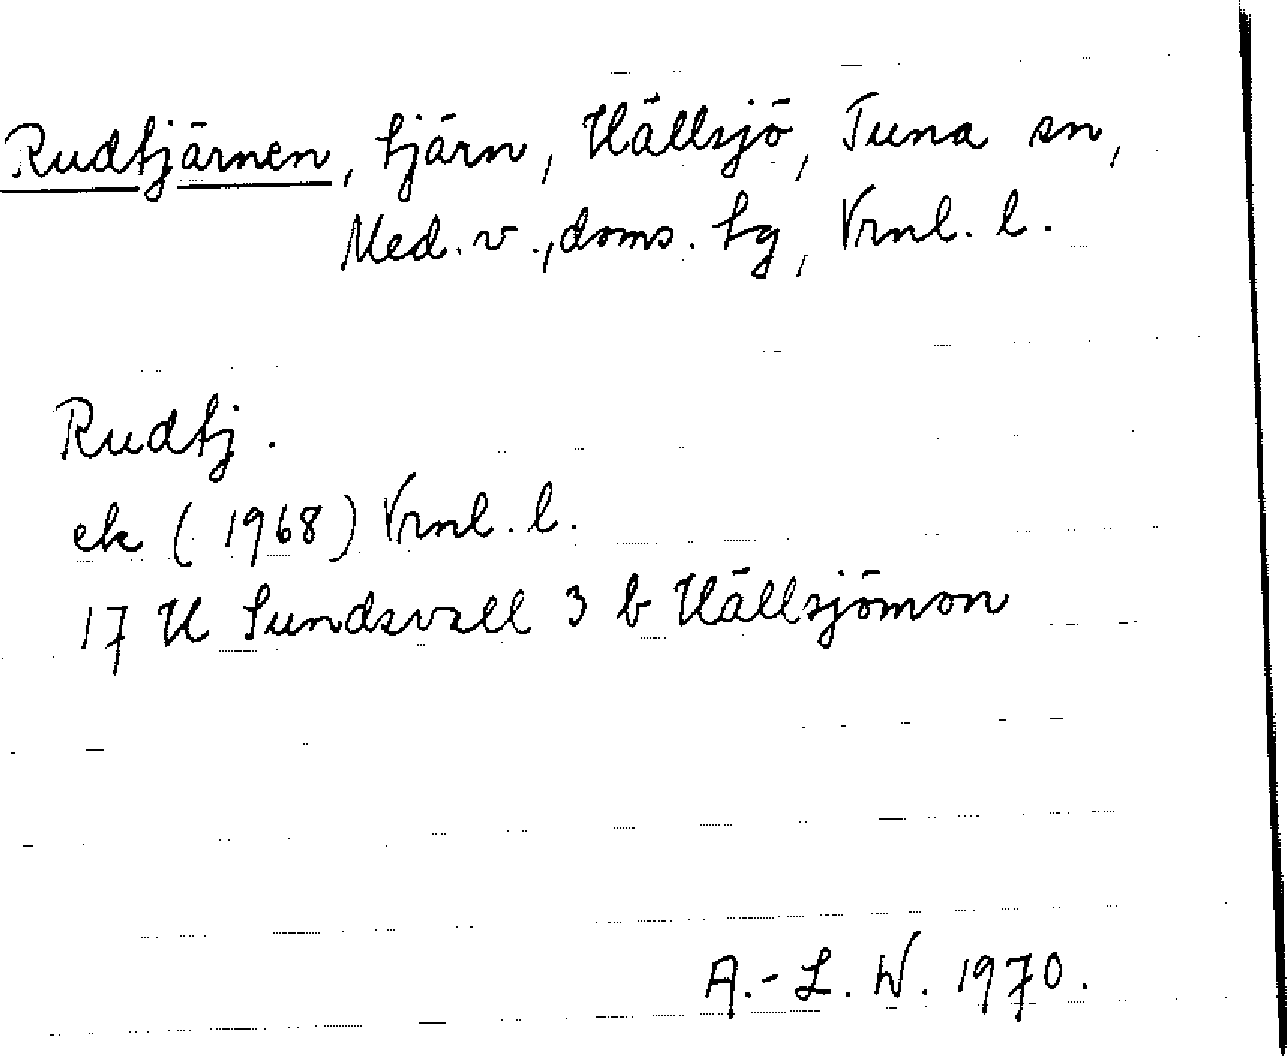 Rudtjärnen, tjärn, Hällsjö, Tuna sn,
Med. v., doms. tg, Vrnl. l.
Rudtj.
ek (1968) Vrnl. l.
17 H Sundsvall 3 b Hällsjömon
A.-L. W. 1970.